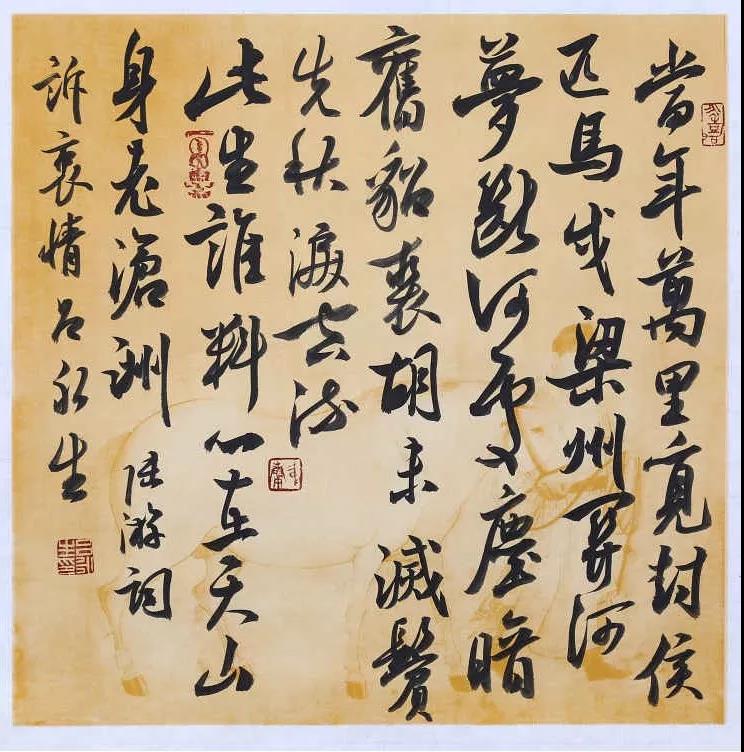 當年萬里覓封侯
匹馬戍梁州關河
夢斷何處塵暗
舊貂裘胡未滅鬢
先秋淚空流
此生誰料心在天山
身老滄洲 陸游詞
訴衷情 呂永生